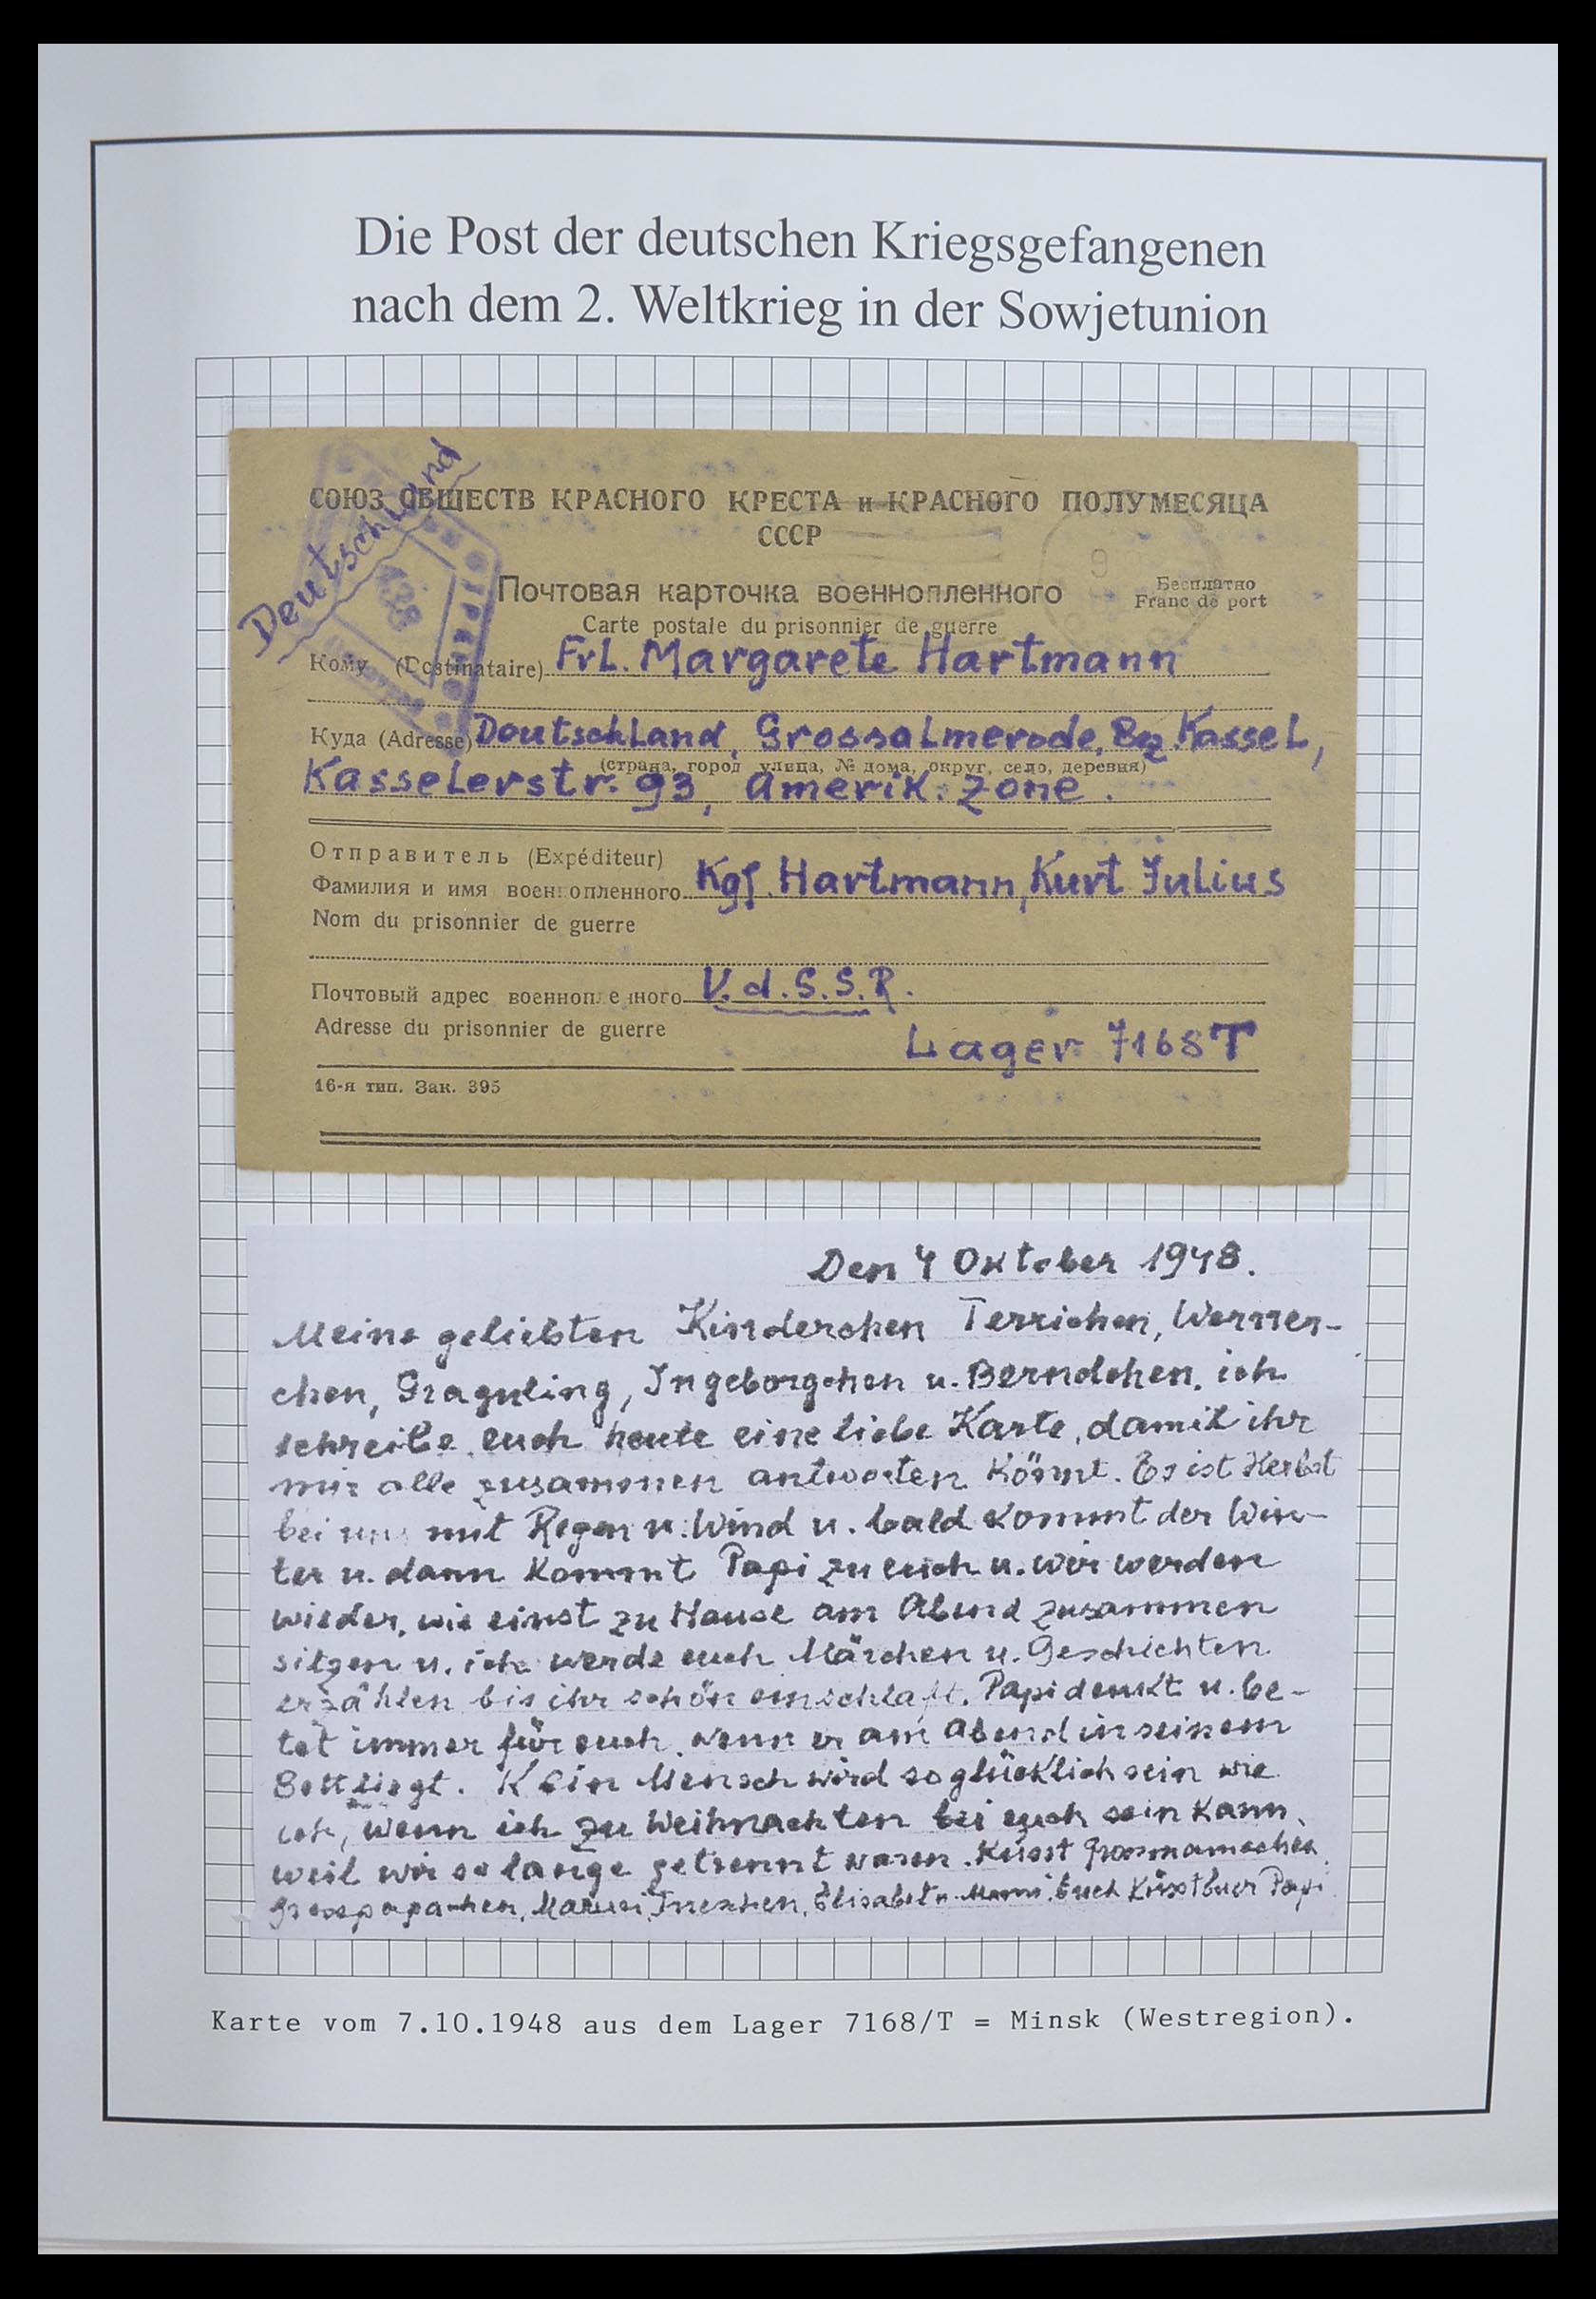 Die Post der deutschen Kriegsgefangenen
nach dem 2. Weltkrieg in der Sowjetunion
Deutschland
СОЮЗ ОБЩЕСТВ КРАСНОГО КРЕСТА и КРАСНОГО ПОЛУМЕСЯЦА
СССР
Почтовая карточка военнопленного
Бесплатно
Franc de port
Carte postale du prisonnier de guerre
Кому (Destinataire) Frl. Margarete Hartmann
Куда (Adresse) Deutschland, Grossalmerode, Bz. Kassel,
(страна, город, улица, № дома, округ, село, деревня)
Kasselerstr. 93, Amerik. Zone.
Отправитель (Expéditeur)
Фамилия и имя военнопленного Kgf. Hartmann, Kurt Julius
Nom du prisonnier de guerre
Почтовый адрес военнопленного V.d.S.S.R.
Adresse du prisonnier de guerre
Lager 7168T
16-я тип. Зак. 395
138
Den 4 Oktober 1948.
Meine geliebten Kinderchen Terrichen, Werner-
chen, Ingeborgchen u. Berndchen, ich
schreibe euch heute eine liebe Karte, damit ihr
mir alle zusammen antworten könnt. Es ist Herbst
bei uns mit Regen u. Wind u. bald kommt der Win-
ter u. dann kommt Papi zu euch u. wir werden
wieder, wie einst zu Hause am Abend zusammen
sitzen u. ich werde euch Märchen u. Geschichten
erzählen bis ihr schön einschlaft. Papi denkt u. be-
tet immer für euch, wenn er am Abend in seinem
Bett liegt. Kein Mensch wird so glücklich sein wie
ich, wenn ich zu Weihnachten bei euch sein kann,
weil wir so lange getrennt waren. Küsst Grosmamachen
Grosspapachen, Elisabeth Euch küsst Euer Papi
Karte vom 7.10.1948 aus dem Lager 7168/T = Minsk (Westregion).